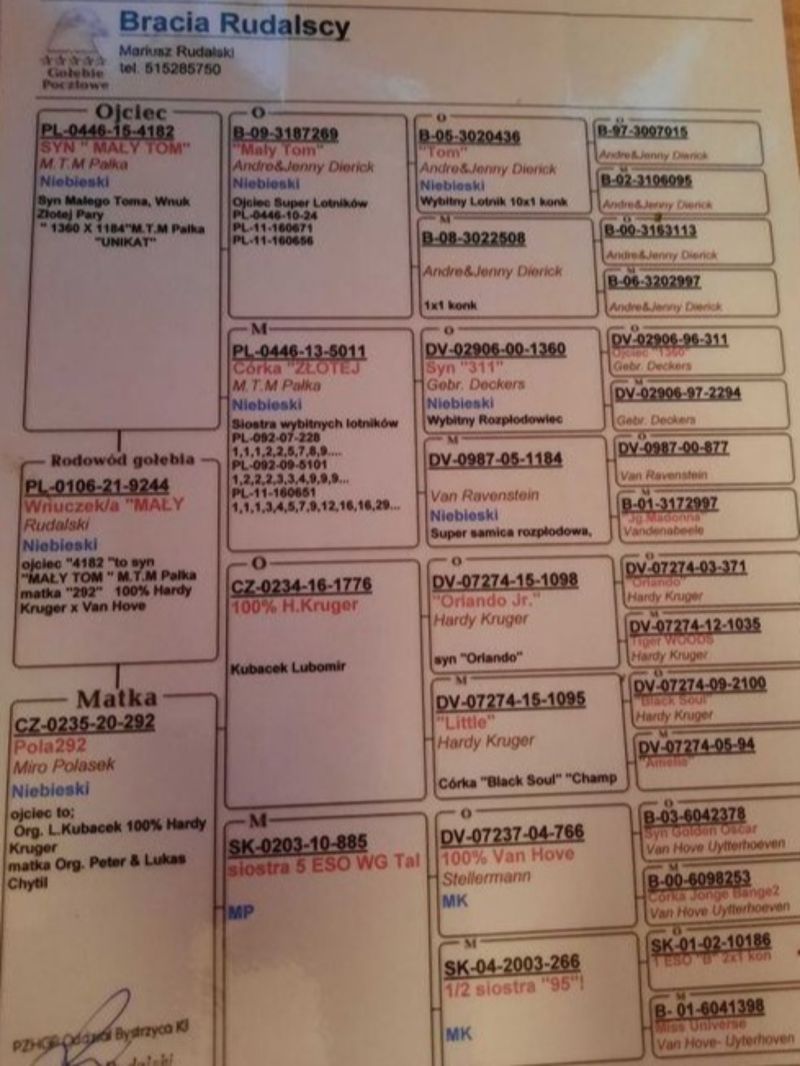 Bracia Rudalscy
Mariusz Rudalski
tel. 515285750
Gołębie
Pocztowe
Ojciec
PL-0446-15-4182
SYN " MAŁY TOM"
M.T.M Pałka
Niebieski
Syn Małego Toma, Wnuk
Złotej Pary
" 1360 X 1184"M.T.M Pałka
"UNIKAT"
Rodowód gołębia
PL-0106-21-9244
Wnuczek/a "MAŁY
Rudalski
Niebieski
ojciec "4182 "to syn
"MAŁY TOM" M.T.M Pałka
matka "292" 100% Hardy
Kruger x Van Hove
Matka
CZ-0235-20-292
Pola292
Miro Polasek
Niebieski
ojciec to;
Org. L.Kubacek 100% Hardy
Kruger
matka Org. Peter & Lukas
Chytil
PZHGP Oddział Bystrzyca Kł
O
B-09-3187269
"Mały Tom"
Andre&Jenny Dierick
Niebieski
Ojciec Super Lotników
PL-0446-10-24
PL-11-160671
PL-11-160656
M
PL-0446-13-5011
Córka "ZŁOTEJ
M.T.M Pałka
Niebieski
Siostra wybitnych lotników
PL-092-07-228
1,1,1,2,2,5,7,8,9....
PL-092-09-5101
1,2,2,2,3,3,4,9,9,9...
PL-11-160651
1,1,1,3,4,5,7,9,12,16,16,29...
O
CZ-0234-16-1776
100% H.Kruger
Kubacek Lubomir
M
SK-0203-10-885
siostra 5 ESO WG Tal
MP
O
B-05-3020436
"Tom"
Andre&Jenny Dierick
Niebieski
Wybitny Lotnik 10x1 konk
M
B-08-3022508
Andre&Jenny Dierick
1x1 konk
O
DV-02906-00-1360
Syn "311"
Gebr. Deckers
Niebieski
Wybitny Rozpłodowiec
M
DV-0987-05-1184
Van Ravenstein
Niebieski
Super samica rozpłodowa,
O
DV-07274-15-1098
"Orlando Jr."
Hardy Kruger
syn "Orlando"
M
DV-07274-15-1095
"Little"
Hardy Kruger
Córka "Black Soul" "Champ
O
DV-07237-04-766
100% Van Hove
Stellermann
MK
M
SK-04-2003-266
1/2 siostra "95"!
MK
O
B-97-3007015
Andre&Jenny Dierick
M
B-02-3106095
Andre&Jenny Dierick
O
B-00-3163113
Andre&Jenny Dierick
M
B-06-3202997
Andre&Jenny Dierick
O
DV-02906-96-311
Ojciec "1360"
Gebr. Deckers
M
DV-02906-97-2294
Gebr. Deckers
O
DV-0987-00-877
Van Ravenstein
M
B-01-3172997
"Jg.Madonna
Vandenabeele
O
DV-07274-03-371
"Orlando"
Hardy Kruger
M
DV-07274-12-1035
Tiger WOODS
Hardy Kruger
O
DV-07274-09-2100
"Black Soul"
Hardy Kruger
M
DV-07274-05-94
"Amelie"
O
B-03-6042378
Syn Golden Oscar
Van Hove Uytterhoeven
M
B-00-6098253
Córka Jonge Bange2
Van Hove Uytterhoeven
O
SK-01-02-10186
1 ESO "B" 2x1 kon
M
B- 01-6041398
Miss Universe
Van Hove- Uyterhoven